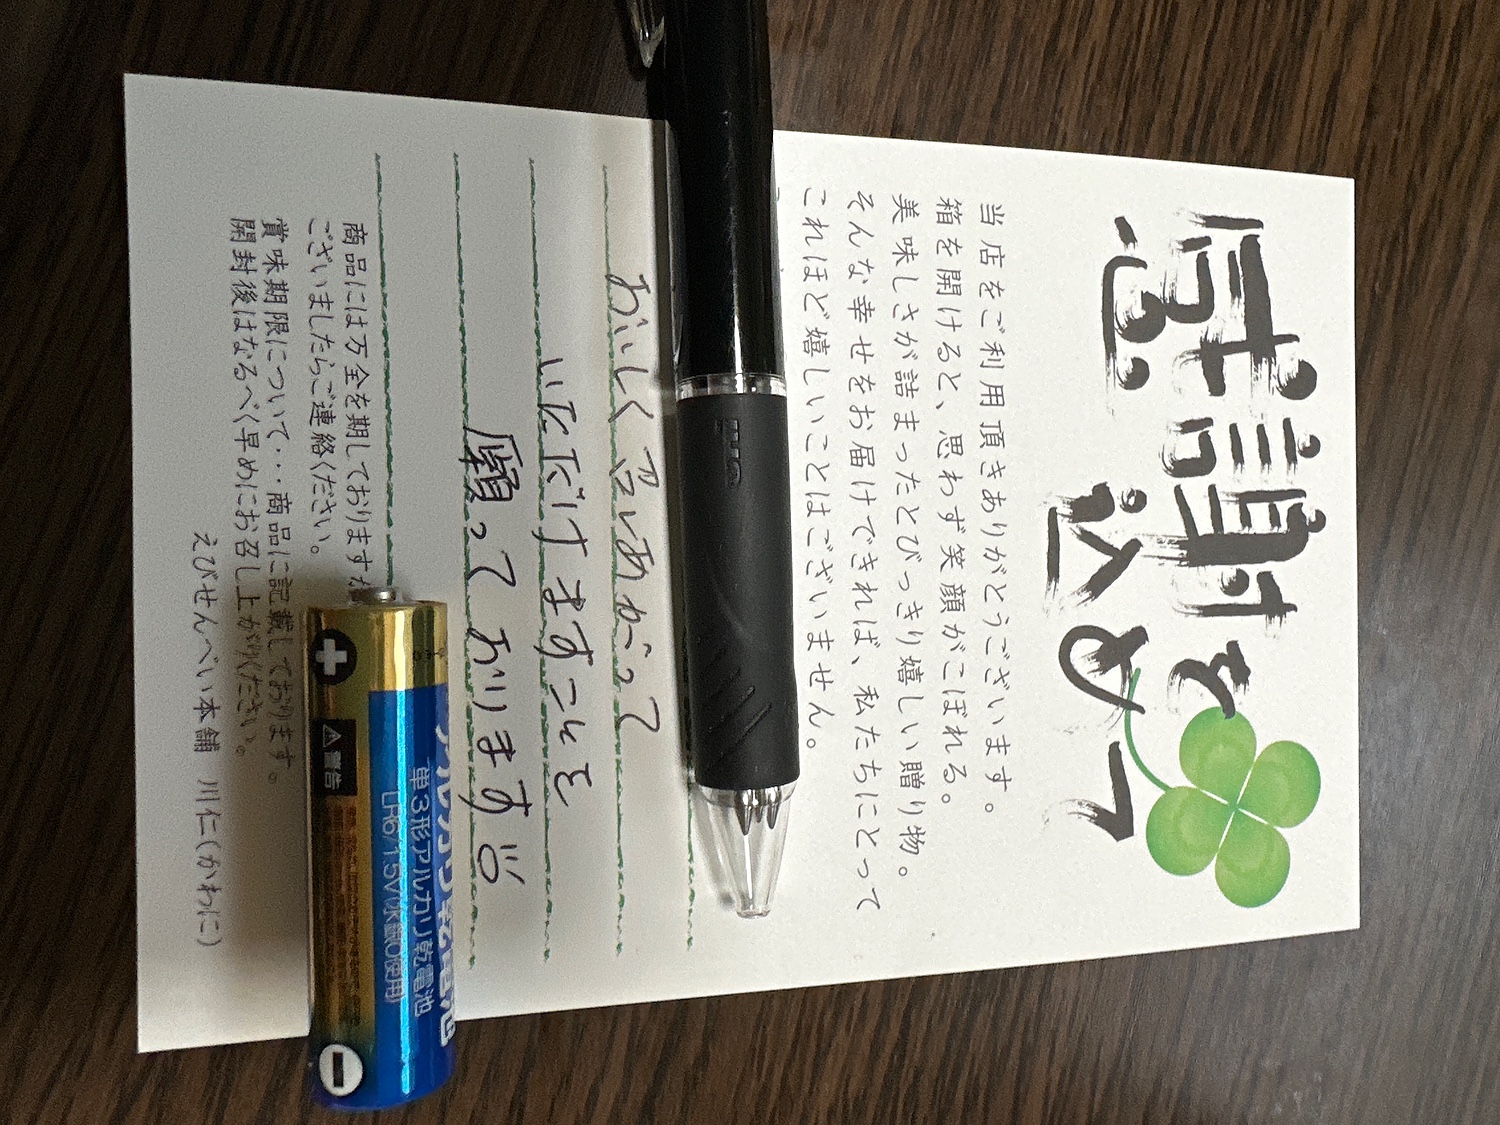 感謝を
込めて
当店をご利用頂きありがとうございます。
箱を開けると、思わず笑顔がこぼれる。
美味しさが詰まったとびっきり嬉しい贈り物。
そんな幸せをお届けできれば、私たちにとって
これほど嬉しいことはございません。
おいしく召しあがって
いただけますことを
願っております
商品には万全を期しておりますが
ございましたらご連絡ください。
賞味期限について・・・商品に記載しております。
開封後はなるべく早めにお召し上がりください。
えびせんべい本舗 川仁(かわに)
アルカリ乾電池
単3形アルカリ乾電池
LR6/1.5V(水銀0使用)
警告
+
−